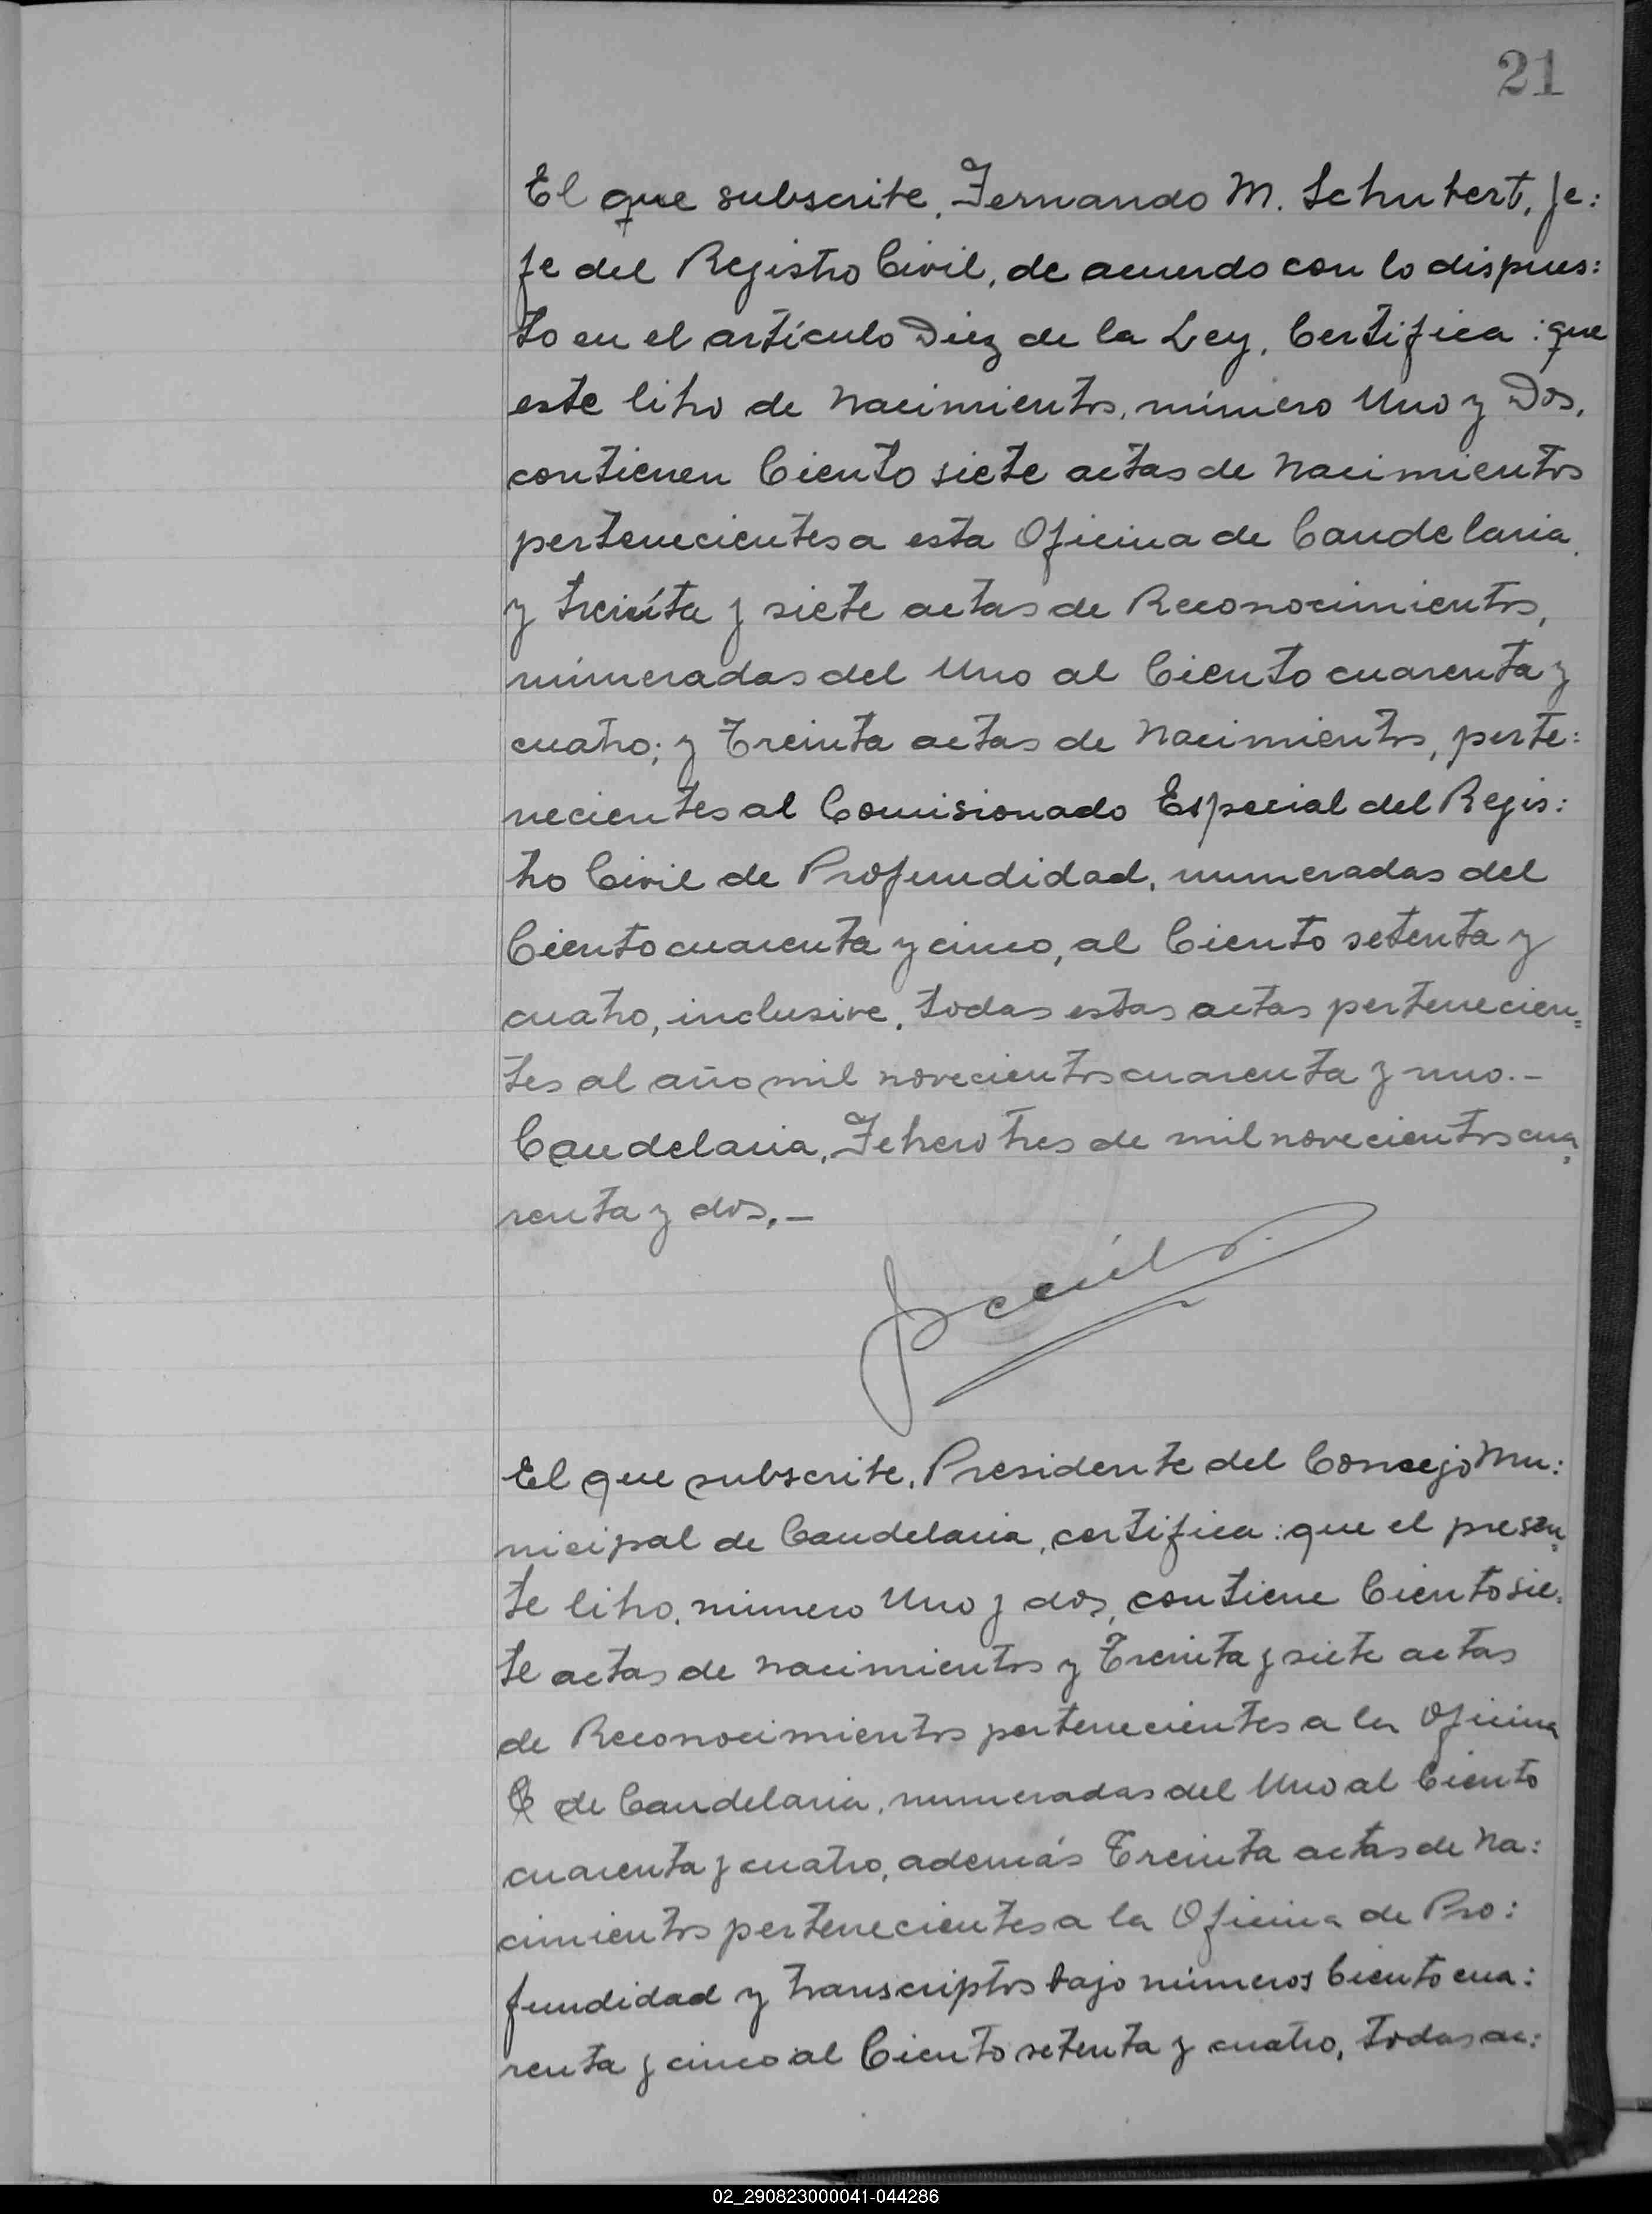 21
El que subscribe, Fernando M. Schubert, Je:
fe del Registro Civil, de acuerdo con lo dispues:
to en el artículo Diez de la Ley, Certifica: que
este libro de Nacimientos, número Uno y Dos,
contienen Ciento siete actas de Nacimientos
pertenecientes a esta Oficina de Candelaria,
y treinta y siete actas de Reconocimientos,
números del Uno al Ciento cuarenta y
cuatro; y Treinta actas de Nacimientos, perte:
necientes al Comisionado Especial del Regis:
tro Civil de Profundidad, numeradas del
Ciento cuarenta y cinco, al Ciento setenta y
cuatro, inclusive, todas estas actas pertenecien=
tes al año mil novecientos cuarenta y uno.-
Candelaria, Febrero tres de mil novecientos cua=
renta y dos.-
El que subscribe, Presidente del Consejo Mu:
nicipal de Candelaria, certifica: que el presen=
te libro, número Uno y dos, contiene Ciento sie=
te actas de Nacimientos y Treinta y siete actas
de Reconocimientos pertenecientes a la Oficina
de Candelaria, numeradas del Uno al Ciento
cuarenta y cuatro, además Treinta actas de Na:
cimientos pertenecientes a la Oficina de Pro:
fundidad y transcriptos bajo números Ciento cua:
renta y cinco al Ciento setenta y cuatro, todas ac:
02_290823000041-044286